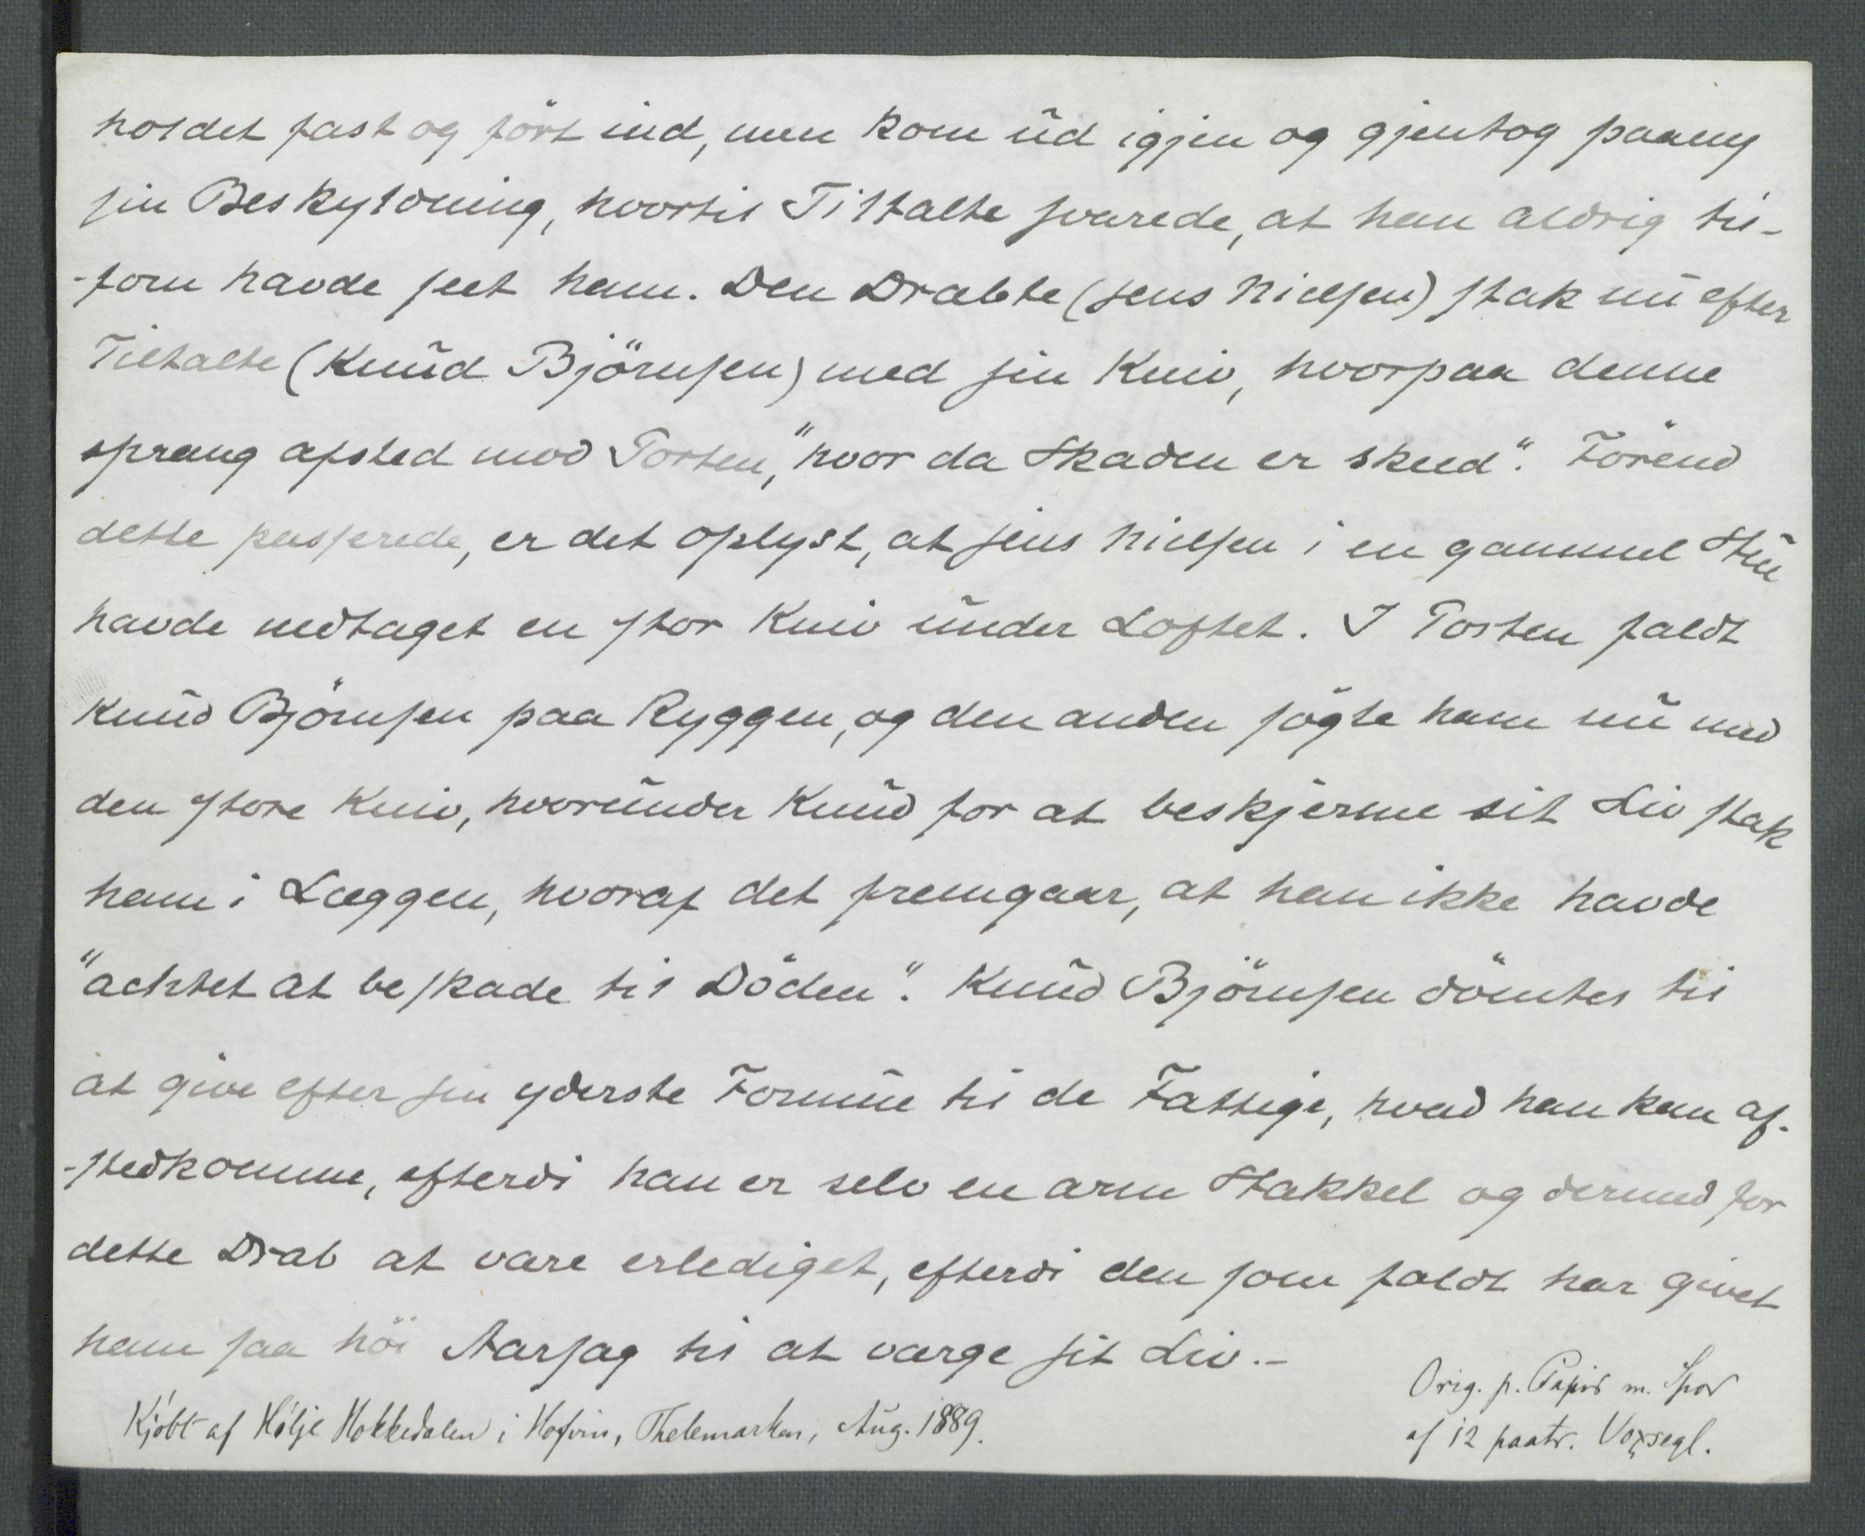 holdet fast og ført ind, men kom ud igjen og gjentog paany
sin Beskyldning, hvortil Tiltalte svarede, at han aldrig til-
-forn havde seet ham. Den Dræbte (Jens Nielsen) stak nu efter
Tiltalte (Knud Bjørnsen) med sin Kniv, hvorpaa denne
sprang afsted mod Porten, "hvor da Skaden er skeed". Førend
dette passerede, er det oplyst, at Jens Nielsen i en gammel Stue
havde nedtaget en stor Kniv under Loftet. I Porten faldt
Knud Bjørnsen paa Ryggen, og den anden søgte ham nu med
den store Kniv, hvorunder Knud for at beskjerme sit Liv stak
ham i Læggen, hvoraf det fremgaar, at han ikke havde
"achtet at beskade til Døden". Knud Bjørnsen dømtes til
at give efter sin yderste Formue til de Fattige, hvad han kan af-
-stedkomme, efterdi han er selv en arm Stakkel og dermed for
dette Drab at være erlediget, efterdi den som faldt har givet
ham saa høi Aarsag til at værge sit Liv.-
Orig. p. Papir m. Spor
af 12 paatr. Voxsegl.
Kjøbt af Hølje Hokkedalen i Hofvin, Thelemarken, Aug. 1889.